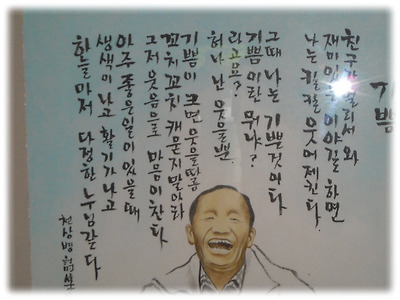 기쁨
친구가 멀리서 와
재미있는 이야길 하면
나는 킬킬 웃어 제친다.
그때 나는 기쁜것이다
기쁨이란 뭐냐?
라고요?
허나 난 웃을뿐.
기쁨이 크면 웃을따름
꼬치꼬치 캐묻지말아라
그저 웃음으로 마음이 찬다
아주 좋은일이 있을때
생색이 나고 활기가 나고
하늘마저 다정한 누님같다
천상병